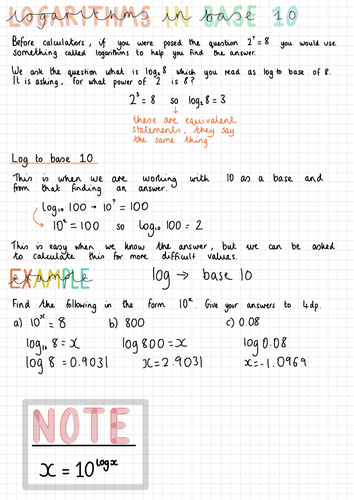 LOGARITHMS IN BASE 10
logarithms in base 10
Before calculators, if you were posed the question 2ˣ = 8 you would use
something called logarithms to help you find the answer.
We ask the question what is log₂8 which you read as log to base of 8.
It is asking, for what power of 2 is 8?
2³ = 8 so log₂8 = 3
these are equivalent
statements, they say
the same thing
Log to base 10
This is when we are working with 10 as a base and
from that finding an answer.
log₁₀ 100 → 10ˣ = 100
10² = 100 so log₁₀ 100 = 2
This is easy when we know the answer, but we can be asked
to calculate this for more difficult values.
EXAMPLE
example
log → base 10
Find the following in the form 10ˣ. Give your answers to 4dp.
a) 10ˣ = 8 b) 800 c) 0.08
log₁₀ 8 = x log 800 = x log 0.08
log 8 = 0.9031 x = 2.9031 x = -1.0969
NOTE
x = 10ˡᵒᵍˣ